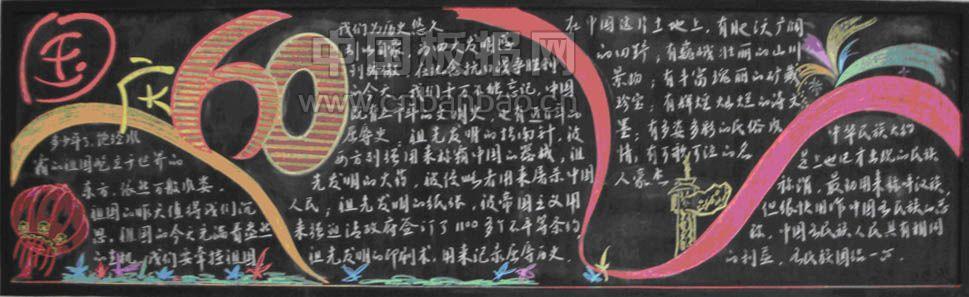 国庆
60
多少年了，饱经风
霜的祖国屹立于世界的
东方，依然百般难委。
祖国的昨天值得我们沉
思，祖国的今天充满着
的生机，我们要掌控祖国
我们为历史悠久
而自豪，为四大发明
而骄傲。在纪念抗日战争胜利
的今天，我们千万不能忘记，中国
既有三千年的文明史，也有近百年的
屈辱史：祖先发明的指南针，被
西方列强用来
中国的
，祖
先发明的火药，被侵略者用来屠杀中国
人民；祖先发明的纸张，被帝国主义用
来强迫清政府签订了1100多个不平等条约
祖先发明的印刷术，用来记录屈辱历史。
在中国这片土地上，有肥沃广阔
的田野；有巍峨壮丽的山川
景物；有丰富瑰丽的矿藏
珍宝；有辉煌灿烂的诗文
墨；有多姿多彩的民俗风
情，有可歌可泣的名
人豪杰
中华民族大约
是上世纪才出现的民族
称谓，最初用来称呼汉族，
但很快用作中国各民族的总
称，中国各民族人民具有相同
的利益，各民族团结一心。
中国板报网
cnbanbao.cn